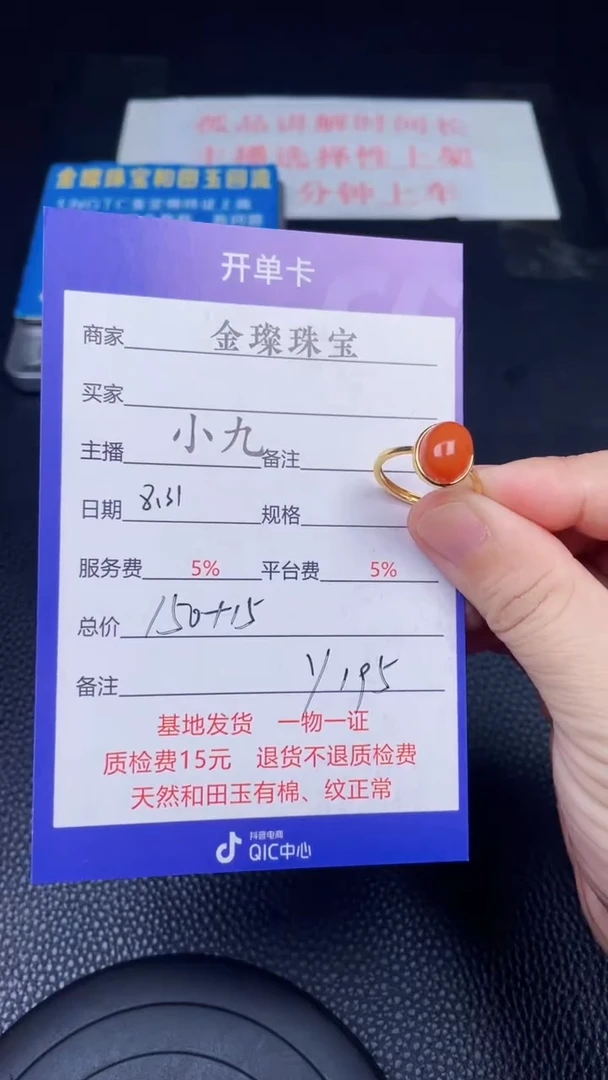 孤品讲解时间长
主播选择性上架
分钟上车
金璨珠宝和田玉回流
开单卡
商家 金璨珠宝
买家
主播 小九 备注
日期 8.31 规格
服务费 5% 平台费 5%
总价 150+15
备注 1/195
基地发货 一物一证
质检费15元 退货不退质检费
天然和田玉有棉、纹正常
抖音电商
QIC中心